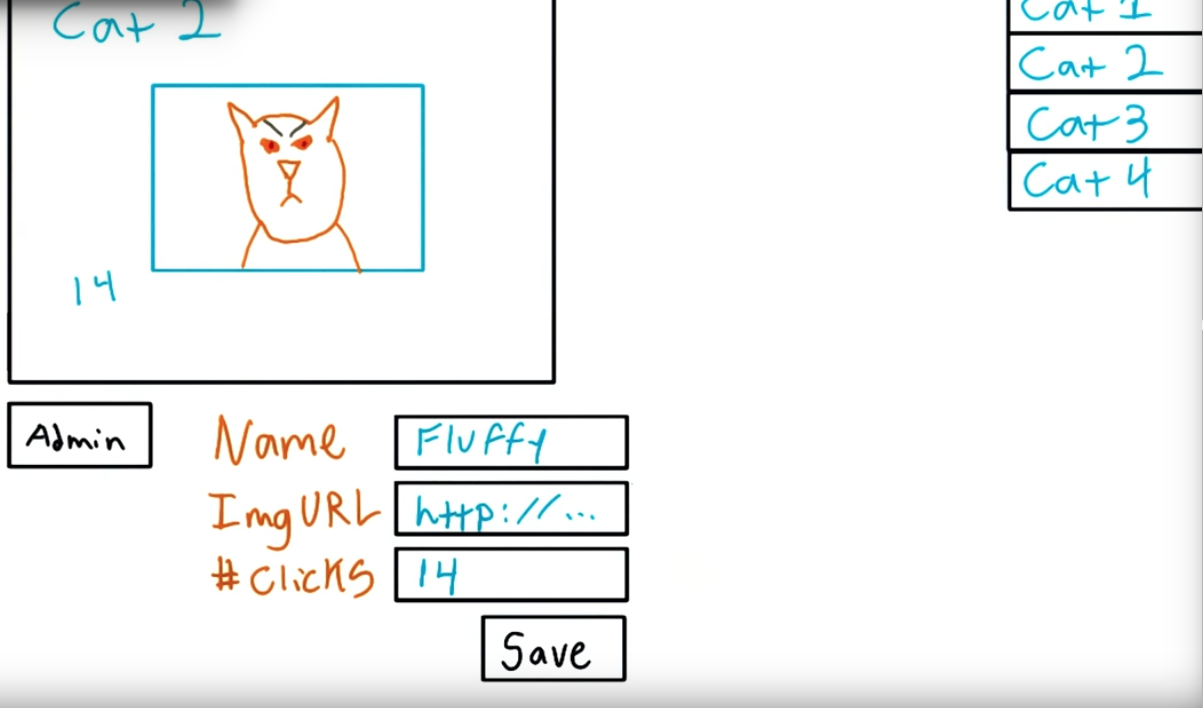 Cat 2
14
Cat 1
Cat 2
Cat 3
Cat 4
Admin
Name Fluffy
Img URL http://...
#Clicks 14
Save